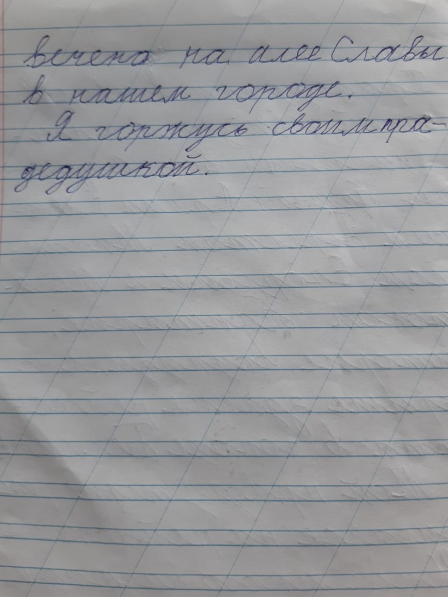 вечена на алее Славы
в нашем городе.
Я горжусь своим пра-
дедушкой.